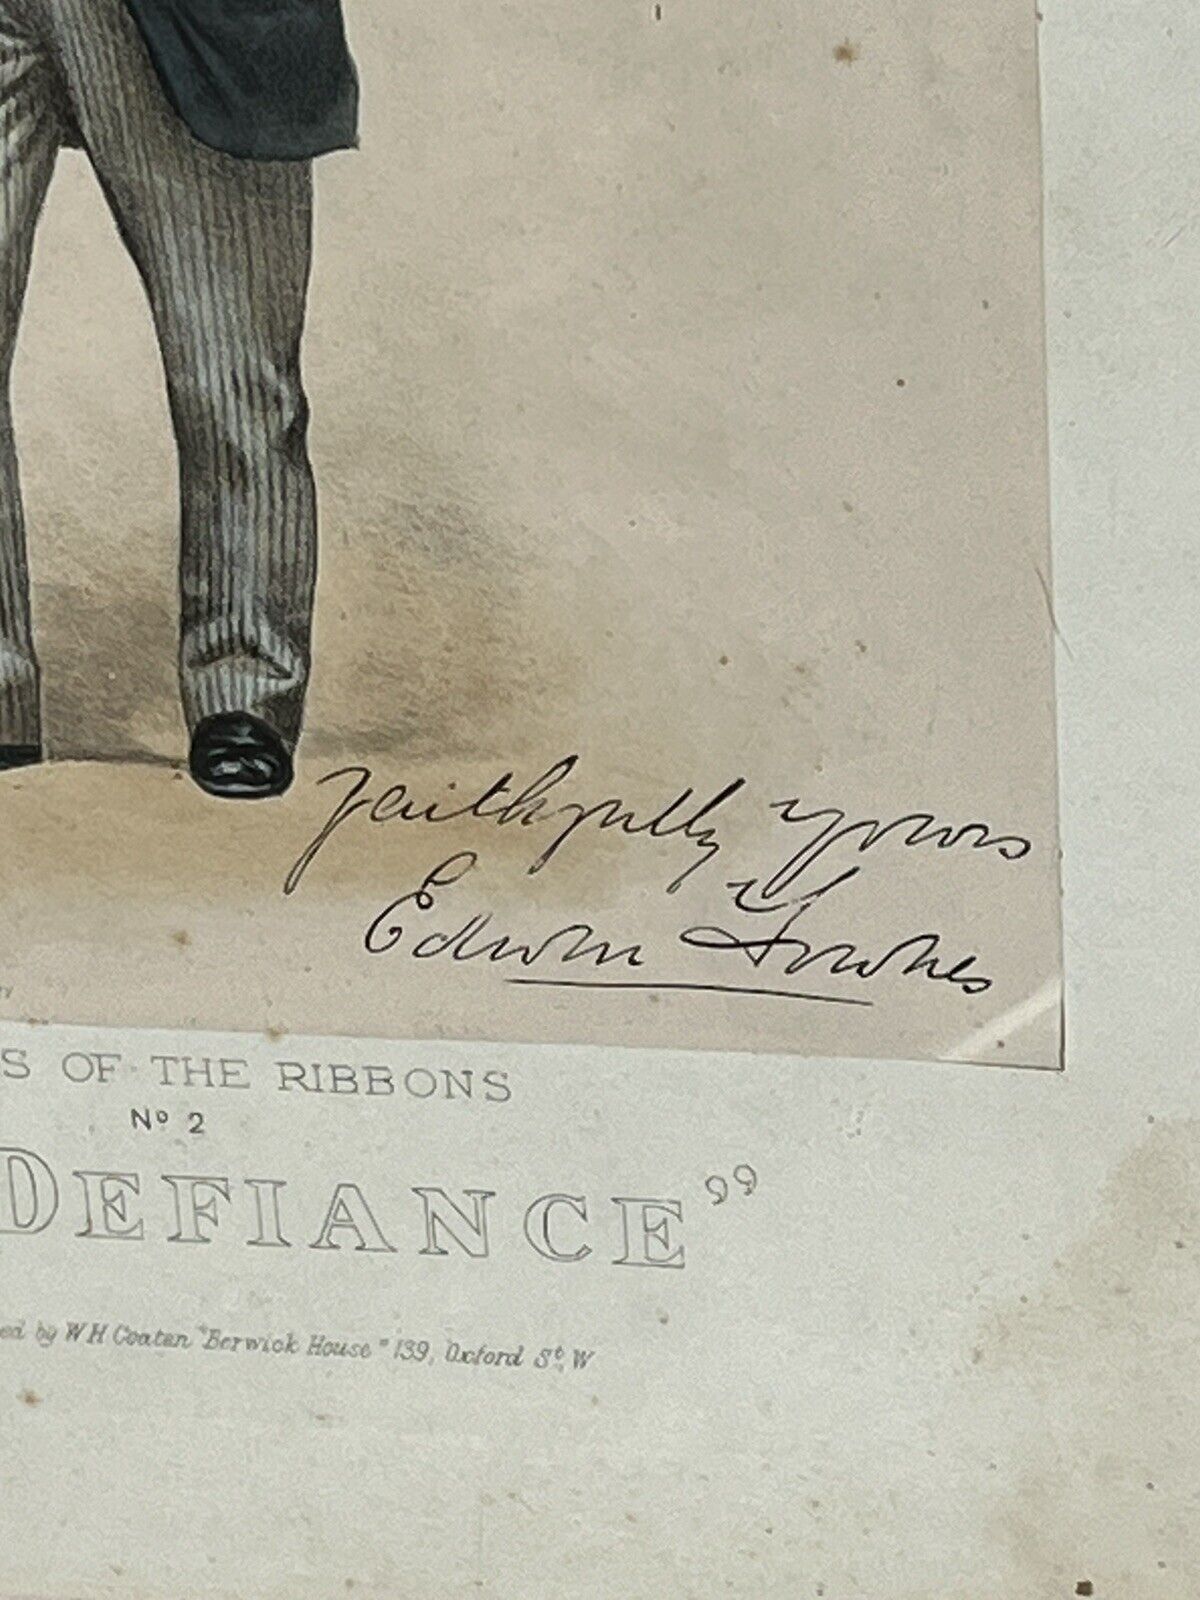 Faithfully Yours
Edwin Fownes
S OF THE RIBBONS
No 2
DEFIANCE”
ed by W H Coaten "Berwick House" 139, Oxford St. W